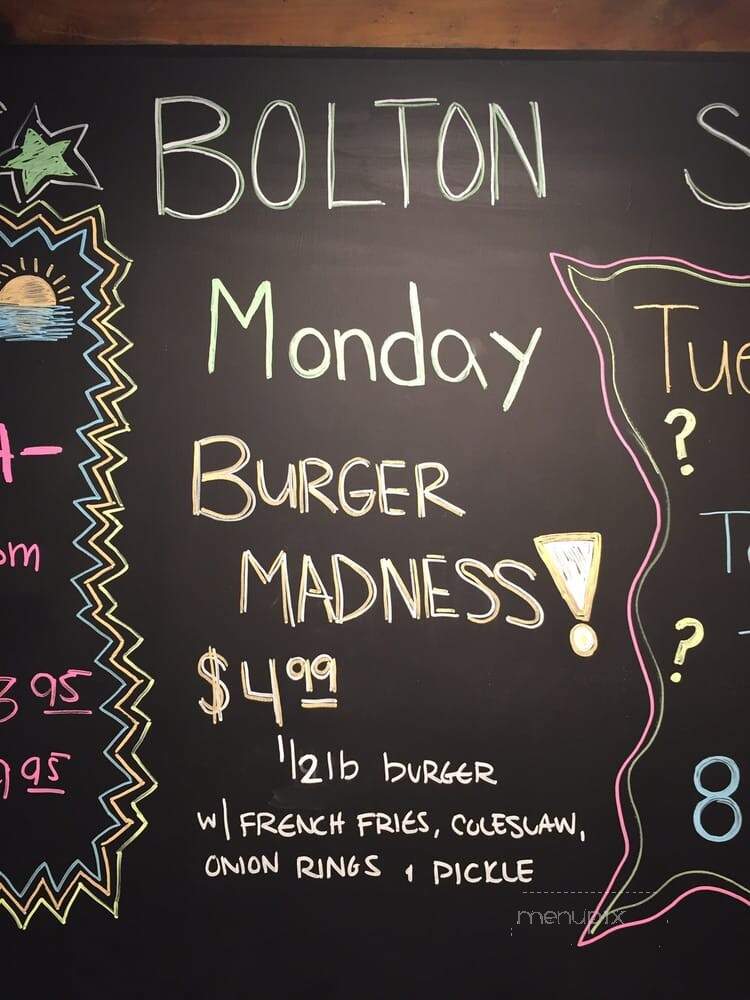 BOLTON
S
Monday
BURGER
MADNESS!
$4.99
1/2lb BURGER
w/ FRENCH FRIES, COLESLAW,
ONION RINGS & PICKLE
Tue
?
?
8
95
95
menupix